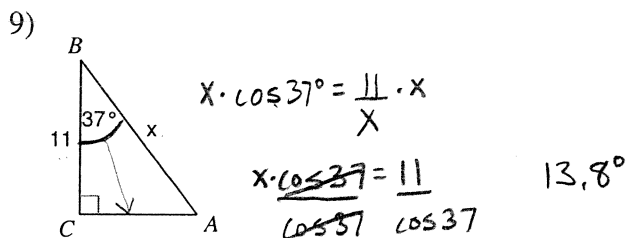 9)
B
37°
11
x
C
A
x · cos 37° = 11/x · x
x · cos 37 / cos 37 = 11 / cos 37
13.8°